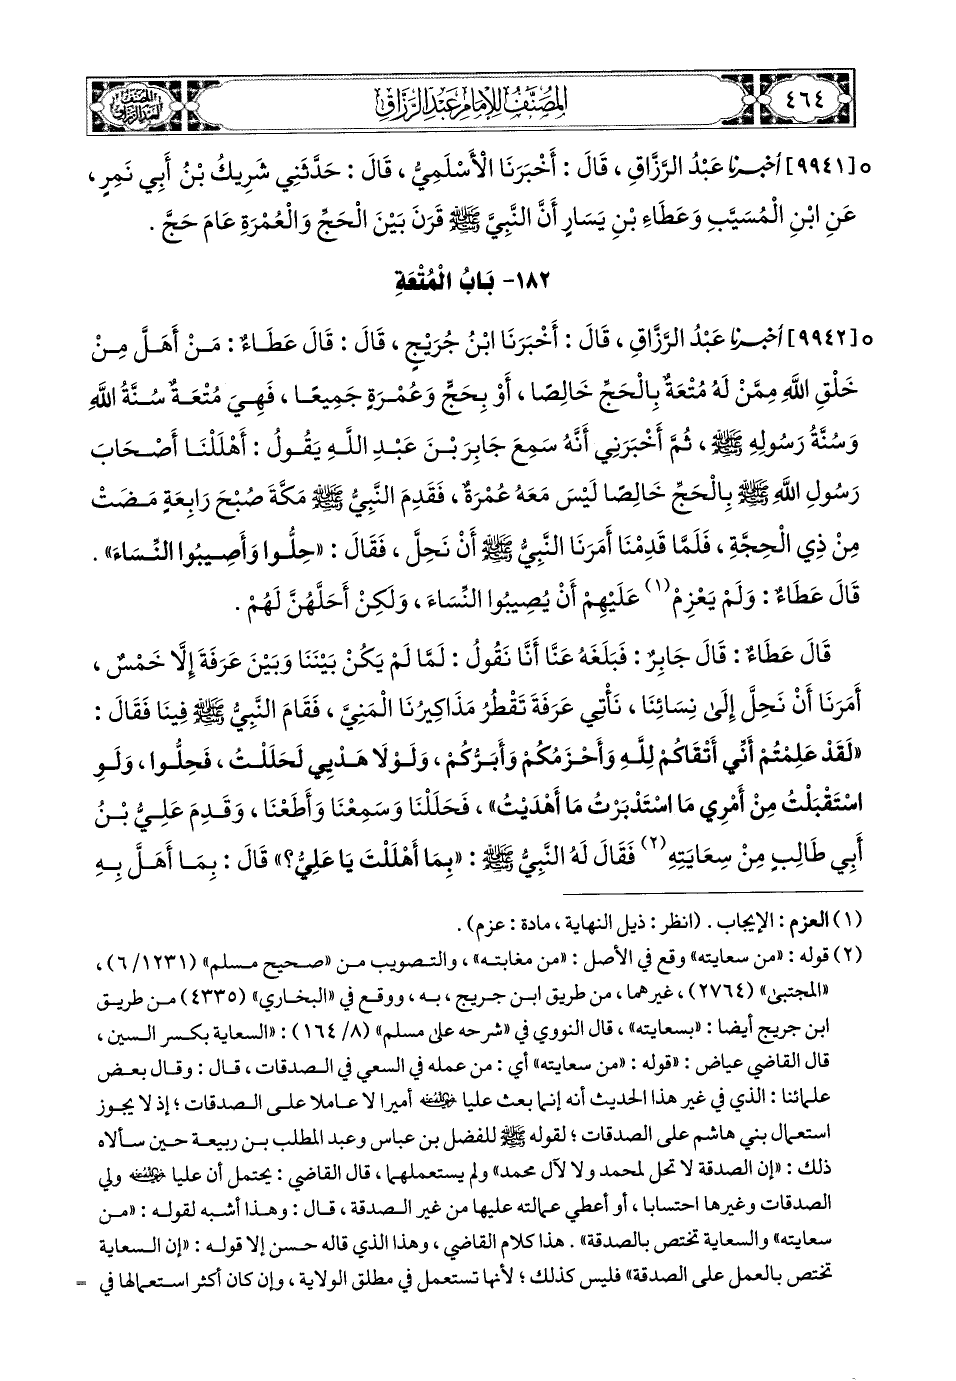 ٤٦٤
المصنف للإمام عبد الرزاق
المصنف لعبد الرزاق
٥ [٩٩٤١] أخبرنا عَبْدُ الرَّزَّاقِ ، قَالَ : أَخْبَرَنَا الْأَسْلَمِيُّ ، قَالَ : حَدَّثَنِي شَرِيكُ بْنُ أَبِي نَمِرٍ ،
عَنِ ابْنِ الْمُسَيَّبِ وَعَطَاءِ بْنِ يَسَارٍ أَنَّ النَّبِيَّ ﷺ قَرَنَ بَيْنَ الْحَجِّ وَالْعُمْرَةِ عَامَ حَجَّ .
١٨٢- بَابُ الْمُتْعَةِ
٥ [٩٩٤٢] أخبرنا عَبْدُ الرَّزَّاقِ ، قَالَ : أَخْبَرَنَا ابْنُ جُرَيْجٍ ، قَالَ : قَالَ عَطَاءٌ : مَنْ أَهَلَّ مِنْ
خَلْقِ اللَّهِ مِمَّنْ لَهُ مُتْعَةٌ بِالْحَجِّ خَالِصًا ، أَوْ بِحَجٍّ وَعُمْرَةٍ جَمِيعًا ، فَهِيَ مُتْعَةٌ سُنَّةُ اللَّهِ
وَسُنَّةُ رَسُولِهِ ﷺ ، ثُمَّ أَخْبَرَنِي أَنَّهُ سَمِعَ جَابِرَ بْنَ عَبْدِ اللَّهِ يَقُولُ : أَهْلَلْنَا أَصْحَابَ
رَسُولِ اللَّهِ ﷺ بِالْحَجِّ خَالِصًا لَيْسَ مَعَهُ عُمْرَةٌ ، فَقَدِمَ النَّبِيُّ ﷺ مَكَّةَ صُبْحَ رَابِعَةٍ مَضَتْ
مِنْ ذِي الْحِجَّةِ ، فَلَمَّا قَدِمْنَا أَمَرَنَا النَّبِيُّ ﷺ أَنْ نَحِلَّ ، فَقَالَ : «حِلُّوا وَأَصِيبُوا النِّسَاءَ» .
قَالَ عَطَاءٌ : وَلَمْ يَعْزِمْ(١) عَلَيْهِمْ أَنْ يُصِيبُوا النِّسَاءَ ، وَلَكِنْ أَحَلَّهُنَّ لَهُمْ .
قَالَ عَطَاءٌ : قَالَ جَابِرٌ : فَبَلَغَهُ عَنَّا أَنَّا نَقُولُ : لَمَّا لَمْ يَكُنْ بَيْنَنَا وَبَيْنَ عَرَفَةَ إِلَّا خَمْسٌ ،
أَمَرَنَا أَنْ نَحِلَّ إِلَىٰ نِسَائِنَا ، نَأْتِي عَرَفَةَ تَقْطُرُ مَذَاكِيرُنَا الْمَنِيَّ ، فَقَامَ النَّبِيُّ ﷺ فِينَا فَقَالَ :
«لَقَدْ عَلِمْتُمْ أَنِّي أَتْقَاكُمْ لِلَّهِ وَأَحْزَمُكُمْ وَأَبَرُّكُمْ ، وَلَوْلَا هَدْيِي لَحَلَلْتُ ، فَحِلُّوا ، وَلَوِ
اسْتَقْبَلْتُ مِنْ أَمْرِي مَا اسْتَدْبَرْتُ مَا أَهْدَيْتُ» ، فَحَلَلْنَا وَسَمِعْنَا وَأَطَعْنَا ، وَقَدِمَ عَلِيُّ بْنُ
أَبِي طَالِبٍ مِنْ سِعَايَتِهِ(٢) فَقَالَ لَهُ النَّبِيُّ ﷺ : «بِمَا أَهْلَلْتَ يَا عَلِيُّ؟» قَالَ : بِمَا أَهَلَّ بِهِ
(١) العزم : الإيجاب . (انظر : ذيل النهاية ، مادة : عزم) .
(٢) قوله : «من سعايته» وقع في الأصل : «من مغابته» ، والتصويب من «صحيح مسلم» (١٢٣١/ ٦) ،
«المجتبى» (٢٧٦٤) ، غيرهما ، من طريق ابن جريج ، به ، ووقع في «البخاري» (٤٣٣٥) من طريق
ابن جريج أيضا : «بسعايته» ، قال النووي في «شرحه على مسلم» (٨/ ١٦٤) : «السعاية بكسر السين ،
قال القاضي عياض : «قوله : «من سعايته» أي : من عمله في السعي في الصدقات ، قال : وقال بعض
علمائنا : الذي في غير هذا الحديث أنه إنما بعث عليا رضي الله عنه أميرا لا عاملا على الصدقات ؛ إذ لا يجوز
استعمال بني هاشم على الصدقات ؛ لقوله ﷺ للفضل بن عباس وعبد المطلب بن ربيعة حين سألاه
ذلك : «إن الصدقة لا تحل لمحمد ولا لآل محمد» ولم يستعملهما ، قال القاضي : يحتمل أن عليا رضي الله عنه ولي
الصدقات وغيرها احتسابا ، أو أعطي عمالته عليها من غير الصدقة ، قال : وهذا أشبه لقوله : «من
سعايته» والسعاية تختص بالصدقة» . هذا كلام القاضي ، وهذا الذي قاله حسن إلا قوله : «إن السعاية
تختص بالعمل على الصدقة» فليس كذلك ؛ لأنها تستعمل في مطلق الولاية ، وإن كان أكثر استعمالها في =